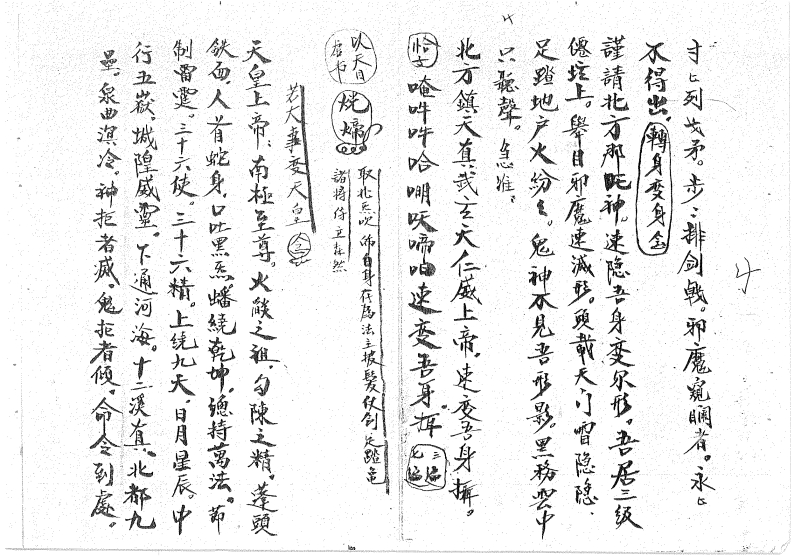 寸〻列戈矛。步〻排劍戟。邪魔窺睏者。永〻
不得出。轉身变身金
謹請北方那毗神。速隐吾身变尔形。吾居三級
僊坛上。舉目邪魔速滅形。頭載天门雪隐隐。
足踏地户火紛〻。鬼神不見吾形影。黑務雲中
只聽聲。急准〻
北方鎮天真武玄天仁威上帝。速变吾身摒。
唵吽吽哈唎呅啼呾速变吾身。摒
三遍
七遍
以天目
書符
取北炁吹 师自身存為法主披髮仗劍足踏亀
諸將侍立森然
若大事变天皇
天皇上帝。南極至尊。火燄之祖。勾陳之精。蓬頭
鉄面。人首蛇身。口吐黑炁。蟠繞乾坤。總持萬法。節
制雷霆。三十六使。三十六精。上统九天。日月星辰。中
行五嶽。城隍威靈。下通河海。十二溪真。北都九
壘。泉曲溟冷。神拒者滅。鬼拒者傾。命令到處。